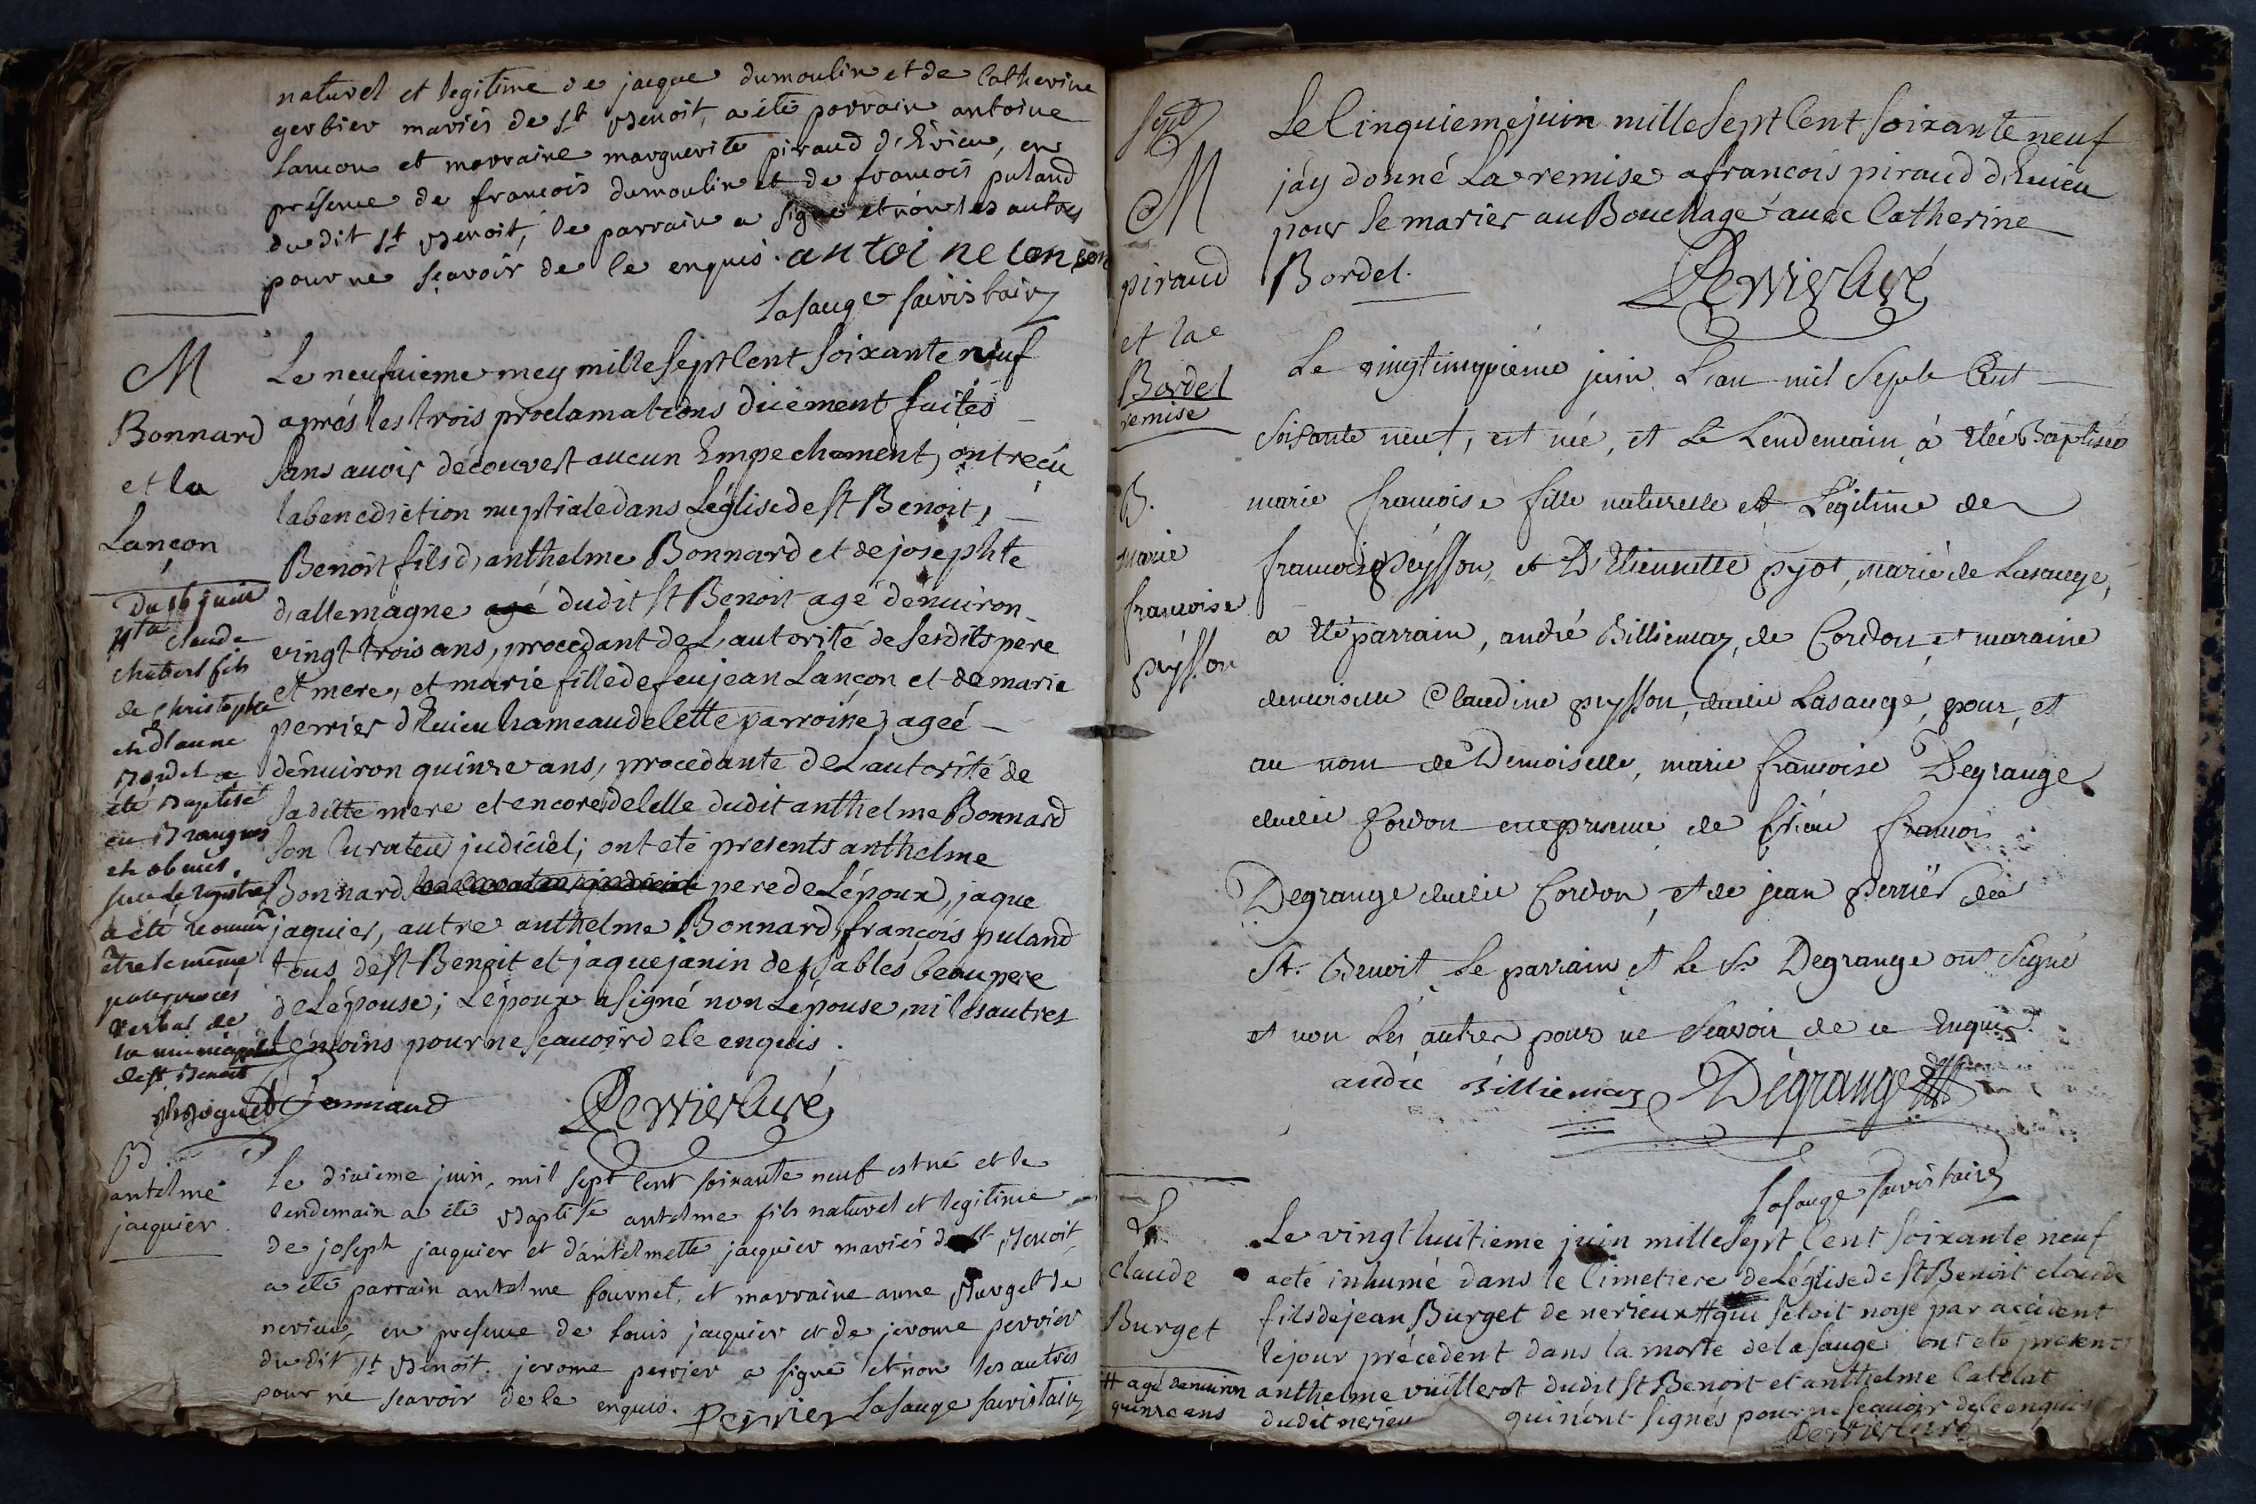 naturel et legitime de jacque dumoulin et de Catherine
gerbier mariés de st Benoit, a été parrain antoine
lancon et marraine marguerite piraud d'Evieu, en
présence de francois dumoulin et de francois puland
du dit st Benoit, le parrain a signé et non les autres
pour ne sçavoir de le enquis. antoine lancon
Lasauge sacristain
M
Bonnard
et la
Lançon
Le neufuieme mey mille sept Cent soixante neuf
aprés les trois proclamations düement faites
sans auoir découvert aucun Empechement, ont reçu
la benediction nuptiale dans Léglise de st Benoit,
Benoit fils d'anthelme Bonnard et de josephte
d'allemagne agé dudit st Benoit agé dénuiron
vingt trois ans, procedant de L'autorité de sesdits pere
et mere, et marie fille de feu jean Lançon et de marie
perrier d'Euieu hameau de Cette parroisse, ageé
dénuiron quinze ans, procedante de L'autorité de
sa ditte mere et encore de Celle dudit anthelme Bonnard
son Curateur judiciel; ont eté presents anthelme
Bonnard pere de Lépoux, jaque
jaquier, autre anthelme Bonnard, françois puland
tous de st Benoit et jaque janin des sables beaupere
de Lépouse; Lépoux a signé non Lépouse, ni les autres
témoins pour ne sçauoir de Ce enquis.
Perrier Curé
Du 16 juin
nta claude
chabert fils
de christophe
et d'anne
Bordel a
été Baptisé
en Brangues
et obmis
sur le registre
a été reconnu
être le même
par procès
verbal de
la municipalité
de st Benoit
Bd
antelme
jacquier
Le dixieme juin, mil sept Cent soixante neuf est né et le
lendemain a été Baptisé antelme fils naturel et legitime
de joseph jacquier et d'antelmette jacquier mariés de st Benoit,
a été parrain antelme fournet, et marraine anne Burget de
nerieu, en presence de Louis jacquier et de jerome perrier
du dit st Benoit. jerome perrier a signé et non les autres
pour ne scavoir de le enquis. Perrier Lasauge sacristain
M
piraud
et la
Bordel
remise
Le Cinquieme juin mille sept Cent soixante neuf
j'ay donné La remise a francois piraud d'Euieu
pour se marier au Bouchage auec Catherine
Bordel.
Perrier Curé
B.
marie
francoise
peysson
Le vingtcinquiéme juin L'an mil Sept Cent
soixante neuf, est née, et Le Lendemain à etée Baptisée
marie francoise fille naturelle et Légitime de
francois peysson, et D'Etiennette pyot, marié de Lasauge,
a eté parrain, andré Billiemaz, de Cordon, et maraine
demoiselle Claudine peysson, dudit Lasauge, pour, et
au nom de Demoiselle, marie francoise Degrange
dudit Cordon en presence de Sieur francois
Degrange dudit Cordon, et de jean perrier de
St. Benoit, Le parrain et le Sr. Degrange ont signé
et non Les autres pour ne scavoir de ce Enquis.
andré Billiemaz Dégrange
Lasauge sacristain
claude
Burget
Le vingt huitieme juin mille sept Cent soixante neuf
a eté inhumé dans le Cimetiere de Léglise de st Benoit claude
fils de jean Burget de nerieux # qui s'etoit noyé par accident
le jour précédent dans la morte de la sauge ont eté présents
anthelme vuillerot dudit st Benoit et anthelme Catelat
dudit nerieu qui n'ont signés pour ne sçauoir de le enquis
Perrier Curé
# agé denuiron
quinze ans